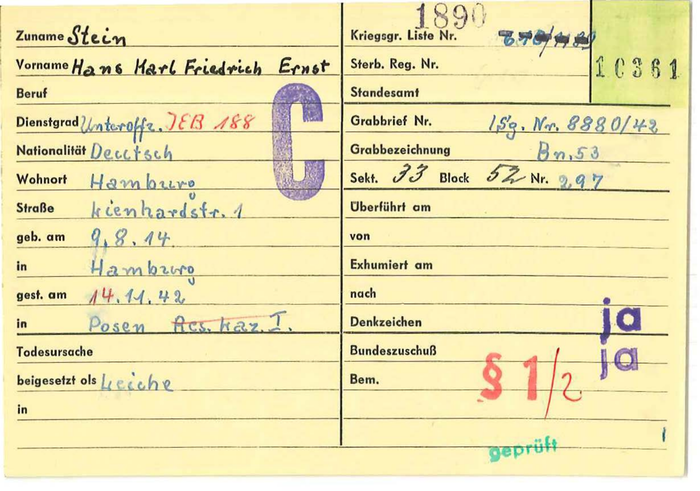 1890
Zuname Stein
Vorname Hans Karl Friedrich Ernst
Beruf
Dienstgrad Unteroffz. JEB 188
Nationalität Deutsch
Wohnort Hamburg
Straße Lienhardstr. 1
geb. am 9.8.14.
in Hamburg
gest. am 14.11.42
in Posen Res. Laz. I.
Todesursache
beigesetzt als Leiche
in
C
Kriegsgr. Liste Nr.
Sterb. Reg. Nr.
10361
Standesamt
Grabbrief Nr. ISg. Nr. 8880/42
Grabbezeichnung Bn. 53
Sekt. 33 Block 52 Nr. 297
Überführt am
von
Exhumiert am
nach
Denkzeichen ja
Bundeszuschuß ja
Bem. § 1/2
geprüft